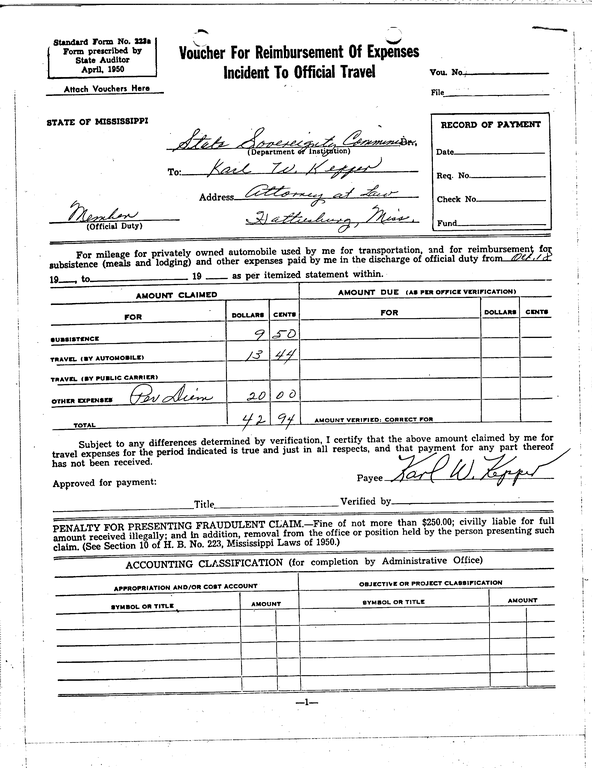 Standard Form No. 223a
Form prescribed by
State Auditor
April, 1950
Attach Vouchers Here
Voucher For Reimbursement Of Expenses
Incident To Official Travel
Vou. No.
File
STATE OF MISSISSIPPI
State Sovereignty Commission
(Department or Institution)
To: Karl W. Kepper
Address Attorney at Law
Member
(Official Duty)
Hattiesburg, Miss.
RECORD OF PAYMENT
Date
Req. No.
Check No.
Fund
For mileage for privately owned automobile used by me for transportation, and for reimbursement for
subsistence (meals and lodging) and other expenses paid by me in the discharge of official duty from Oct. 18
19__, to__________ 19__ as per itemized statement within.
AMOUNT CLAIMED
AMOUNT DUE (AS PER OFFICE VERIFICATION)
FOR DOLLARS CENTS FOR DOLLARS CENTS
SUBSISTENCE 9 50
TRAVEL (BY AUTOMOBILE) 13 44
TRAVEL (BY PUBLIC CARRIER)
OTHER EXPENSES Per Diem 20 00
TOTAL 42 94 AMOUNT VERIFIED: CORRECT FOR
Subject to any differences determined by verification, I certify that the above amount claimed by me for
travel expenses for the period indicated is true and just in all respects, and that payment for any part thereof
has not been received.
Payee Karl W. Kepper
Approved for payment:
Title Verified by
PENALTY FOR PRESENTING FRAUDULENT CLAIM.—Fine of not more than $250.00; civilly liable for full
amount received illegally; and in addition, removal from the office or position held by the person presenting such
claim. (See Section 10 of H. B. No. 223, Mississippi Laws of 1950.)
ACCOUNTING CLASSIFICATION (for completion by Administrative Office)
APPROPRIATION AND/OR COST ACCOUNT
OBJECTIVE OR PROJECT CLASSIFICATION
SYMBOL OR TITLE AMOUNT SYMBOL OR TITLE AMOUNT
—1—